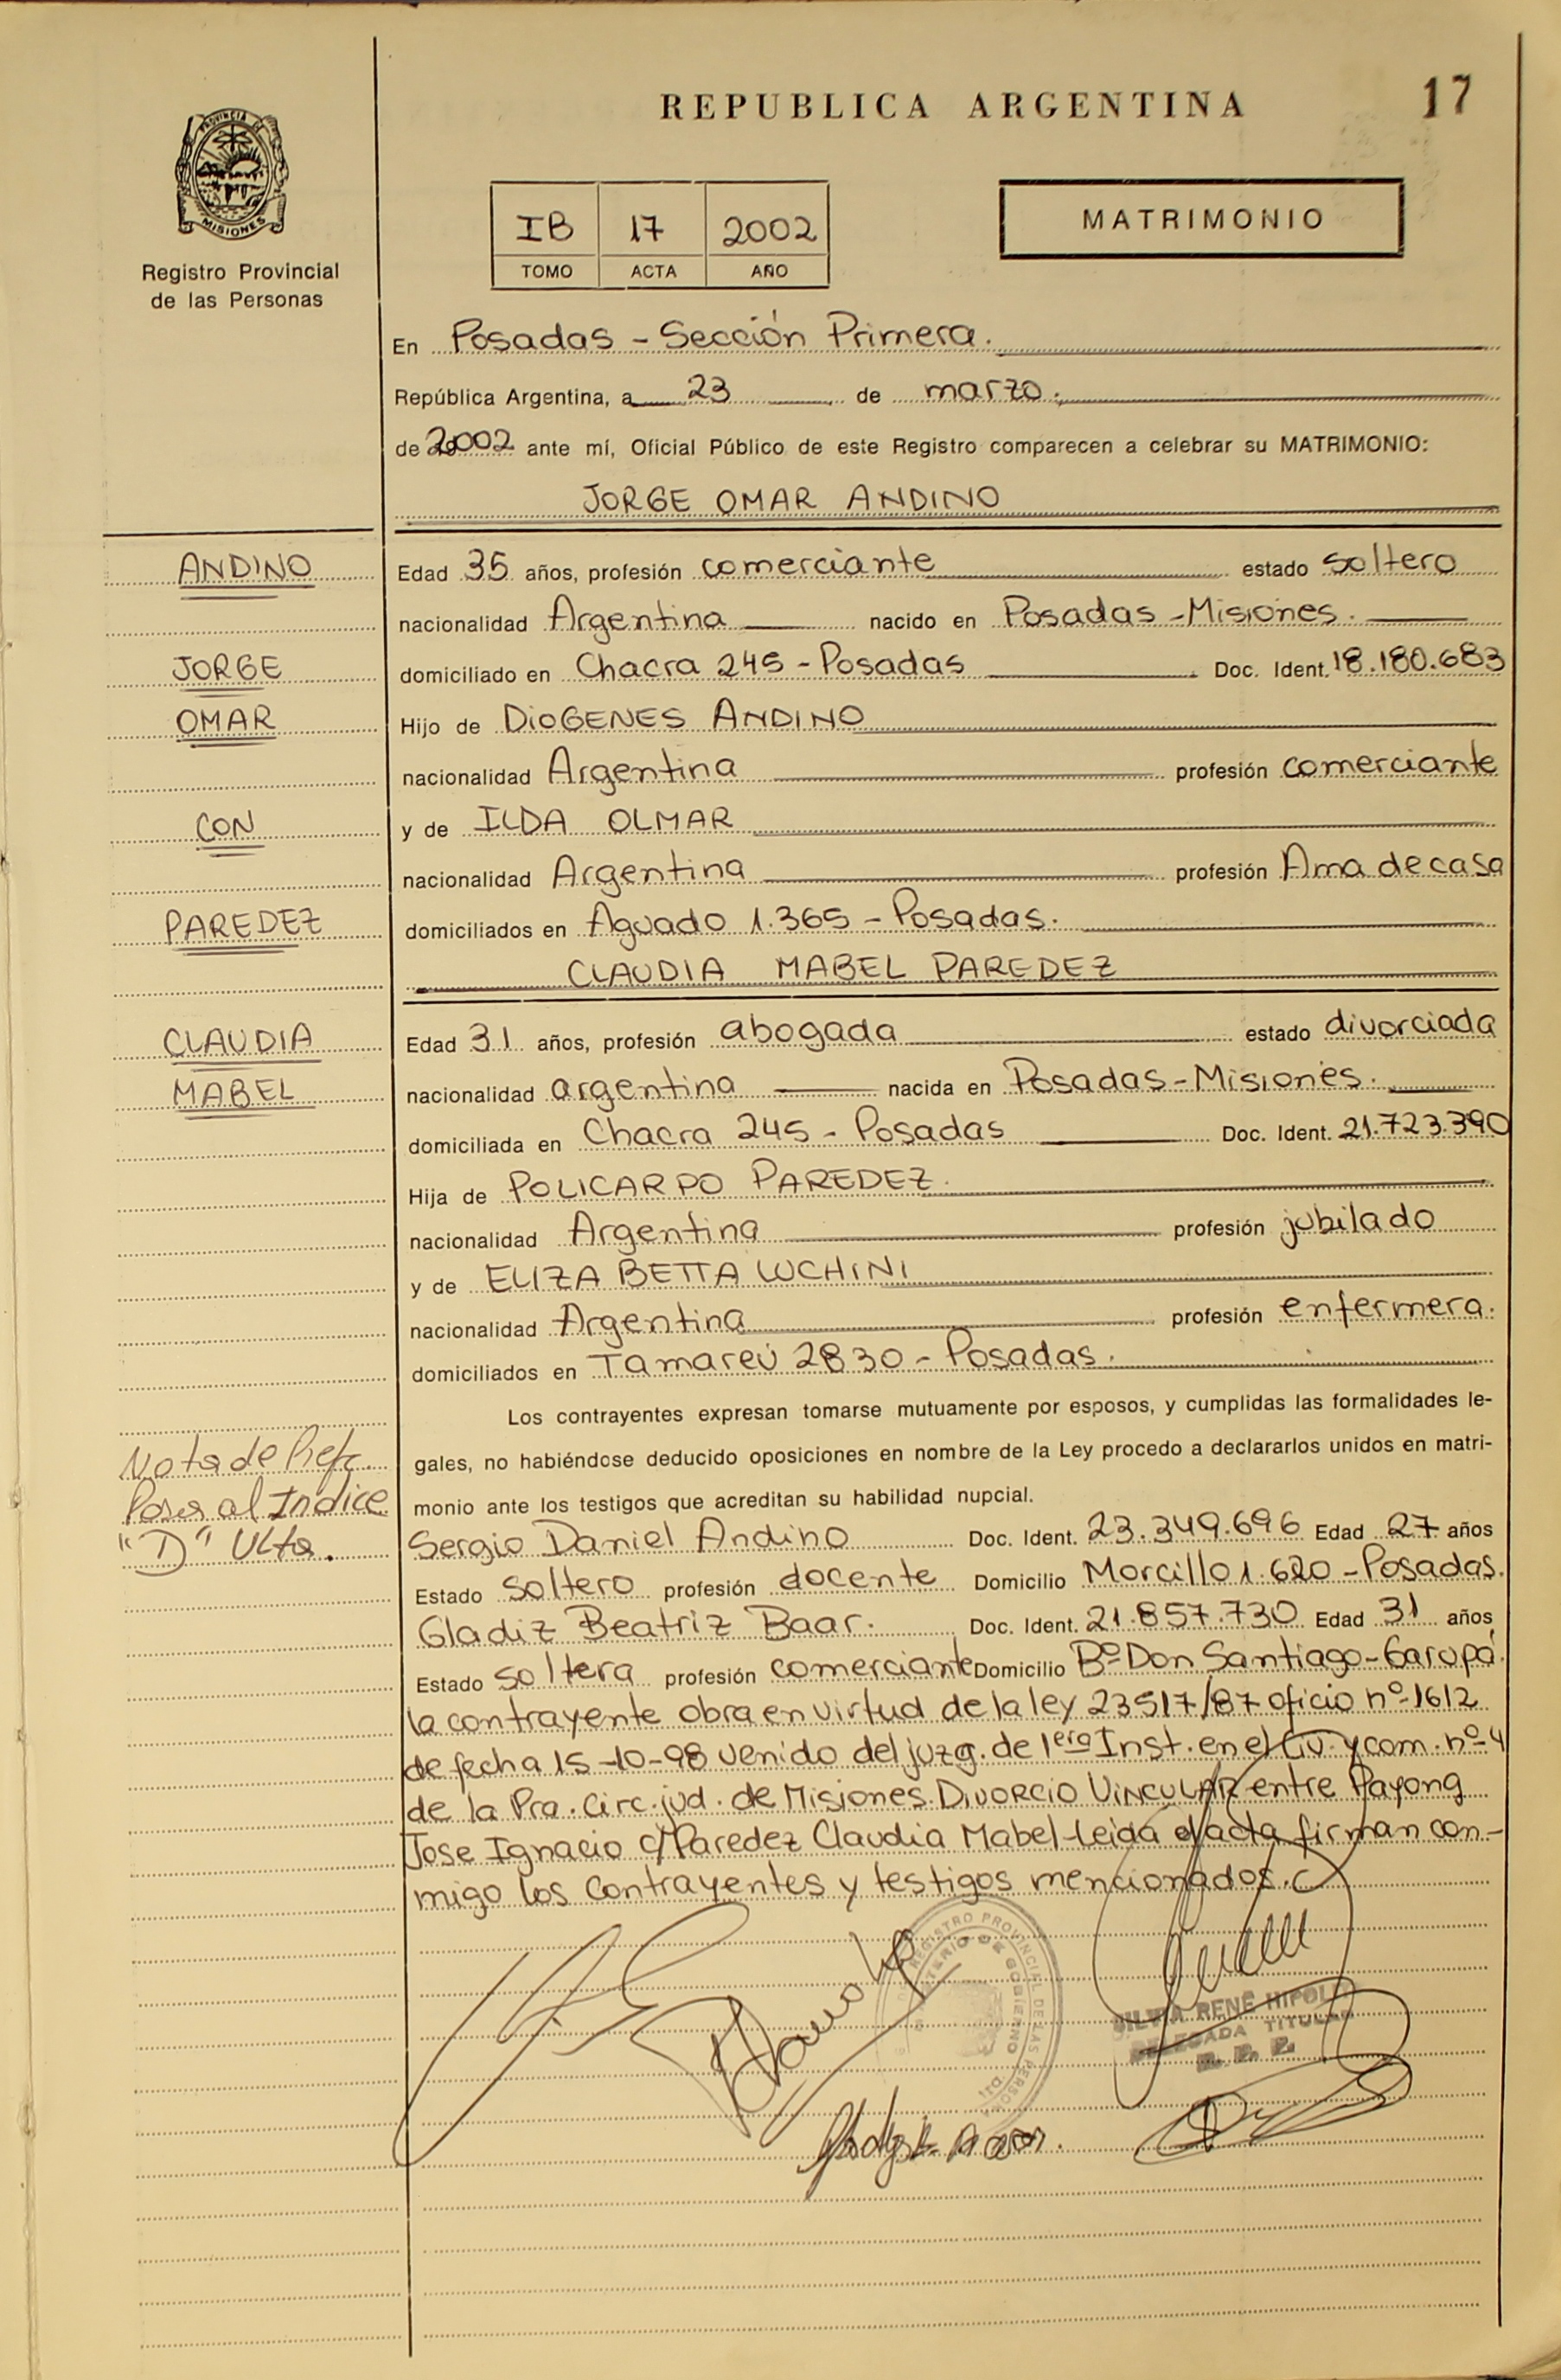 REPUBLICA ARGENTINA
17
PROVINCIA DE
MISIONES
Registro Provincial
de las Personas
IB 17 2002
TOMO ACTA AÑO
MATRIMONIO
En Posadas - Sección Primera.
República Argentina, a 23 de marzo.
de 2002 ante mí, Oficial Público de este Registro comparecen a celebrar su MATRIMONIO:
JORGE OMAR ANDINO
ANDINO
JORGE
OMAR
CON
PAREDEZ
CLAUDIA
MABEL
Edad 35 años, profesión comerciante estado soltero
nacionalidad Argentina nacido en Posadas - Misiones.
domiciliado en Chacra 245 - Posadas Doc. Ident. 18.180.683
Hijo de DIOGENES ANDINO
nacionalidad Argentina profesión comerciante
y de ILDA OLMAR
nacionalidad Argentina profesión Ama de casa
domiciliados en Aguado 1.365 - Posadas.
CLAUDIA MABEL PAREDEZ
Edad 31 años, profesión abogada estado divorciada
nacionalidad argentina nacida en Posadas - Misiones.
domiciliada en Chacra 245 - Posadas Doc. Ident. 21.723.390
Hija de POLICARPO PAREDEZ.
nacionalidad Argentina profesión jubilado
y de ELIZA BETTA LUCHINI
nacionalidad Argentina profesión enfermera.
domiciliados en Tamareú 2830 - Posadas.
Los contrayentes expresan tomarse mutuamente por esposos, y cumplidas las formalidades le-
gales, no habiéndose deducido oposiciones en nombre de la Ley procedo a declararlos unidos en matri-
monio ante los testigos que acreditan su habilidad nupcial.
Nota de Refc.
Pasa al Indice
"D" Ulta.
Sergio Daniel Andino Doc. Ident. 23.349.696 Edad 27 años
Estado soltero profesión docente Domicilio Morcillo 1.620 - Posadas.
Gladiz Beatriz Baar. Doc. Ident. 21.857.730 Edad 31 años
Estado soltera profesión comerciante Domicilio Bº Don Santiago - Garupá.
la contrayente obra en virtud de la ley 23517/87 oficio nº 1612
de fecha 15-10-98 venido del juzg. de 1era Inst. en el Civ. y com. nº 4
de la Pra. Circ. jud. de Misiones. DIVORCIO VINCULAR entre Payong
Jose Ignacio c/ Paredez Claudia Mabel - leida el acta firman con-
migo los contrayentes y testigos mencionados.
REGISTRO PROVINCIAL DE LAS PERSONAS
MINISTERIO DE GOBIERNO
SILVIA RENÉ HIPOL
DELEGADA TITULAR